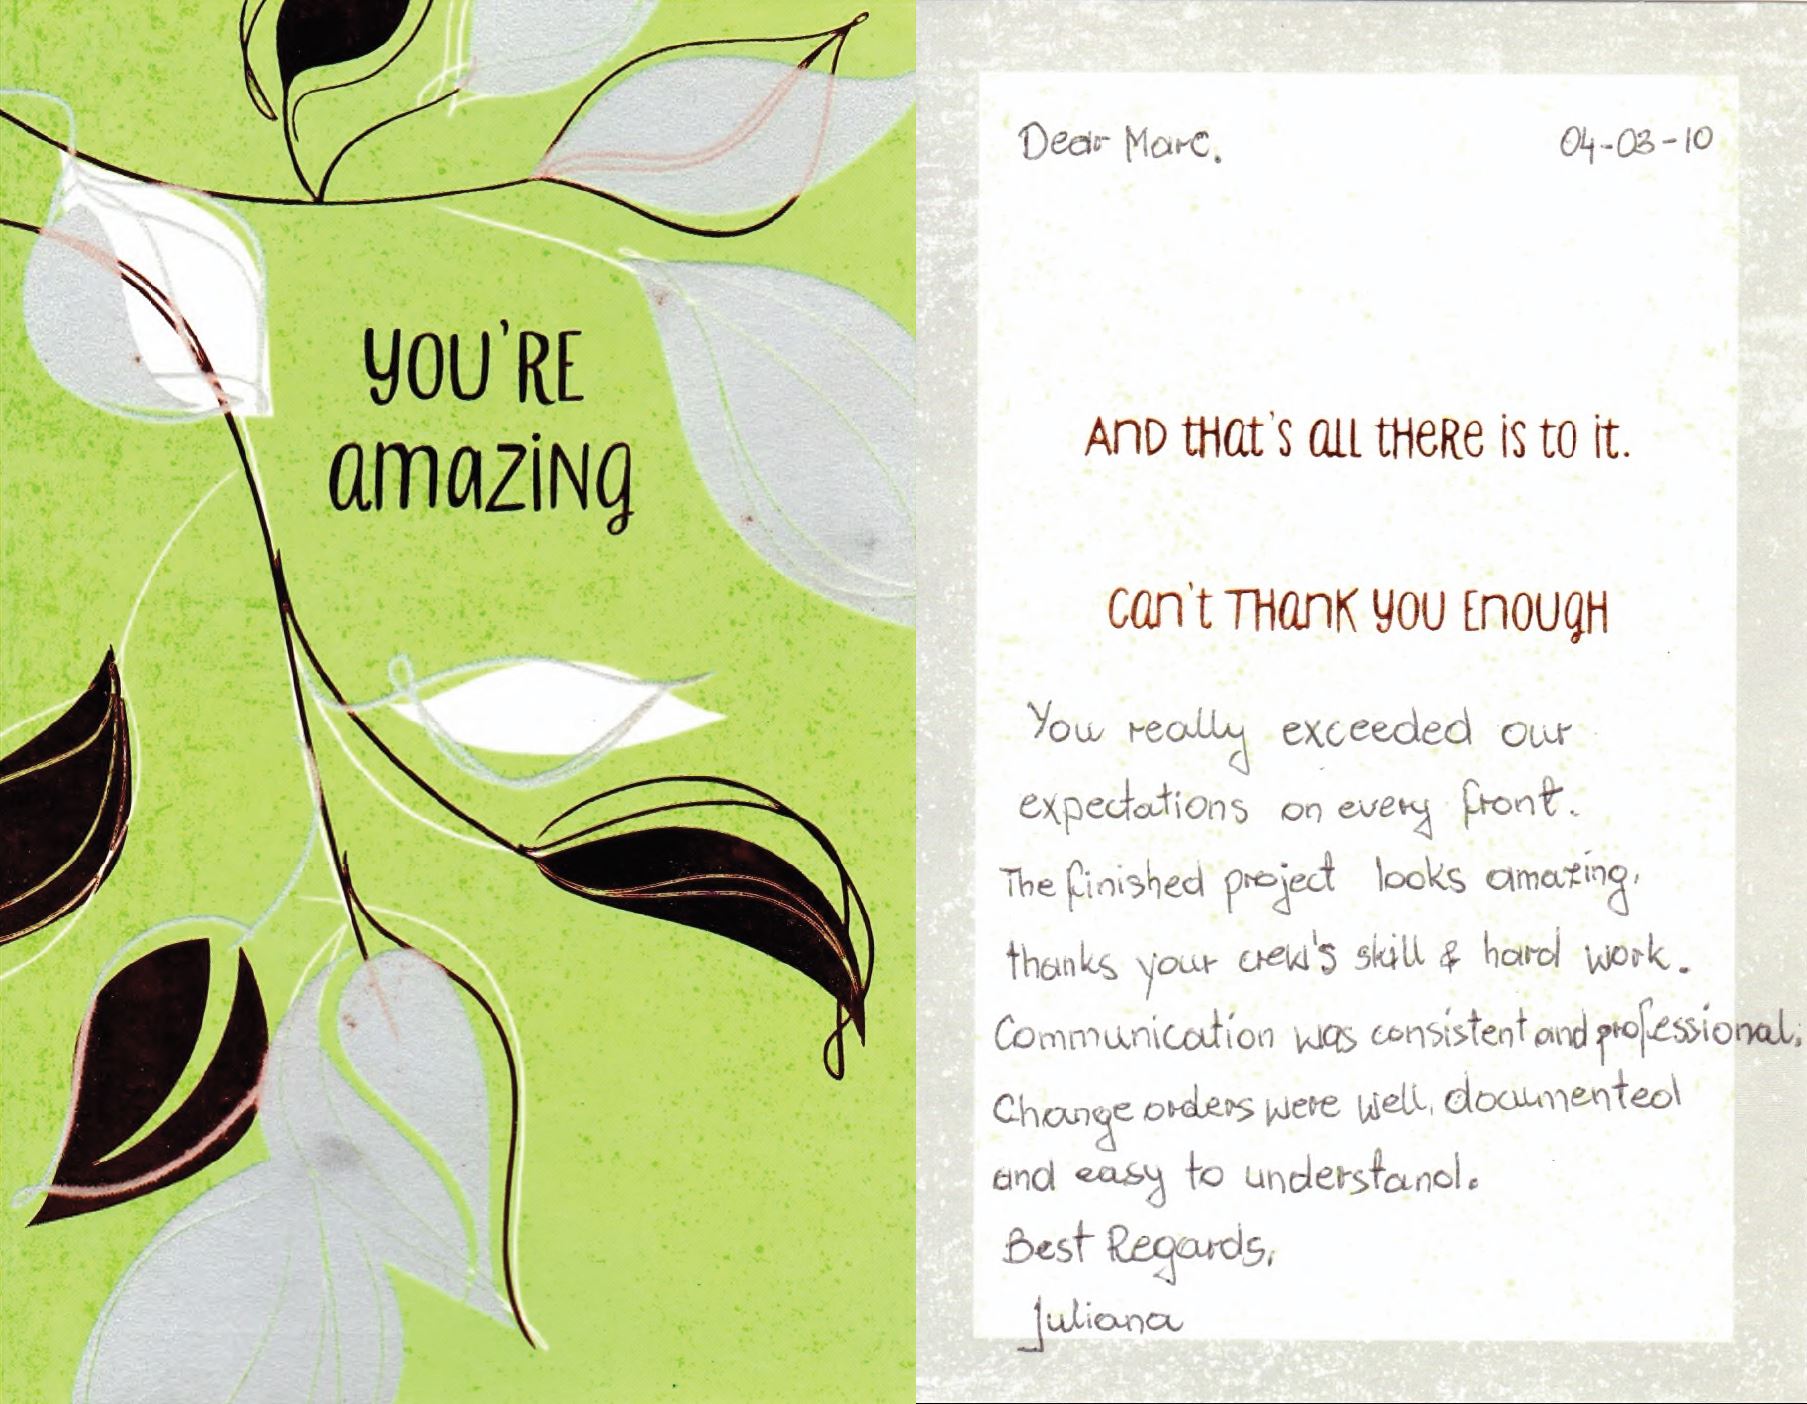 YOU'RE
amazing
Dear Marc. 04-03-10
And that's all there is to it.
Can't thank you enough
You really exceeded our
expectations on every front.
The finished project looks amazing,
thanks your crew's skill & hard work.
Communication was consistent and professional.
Change orders were well, documented
and easy to understand.
Best Regards,
Juliana